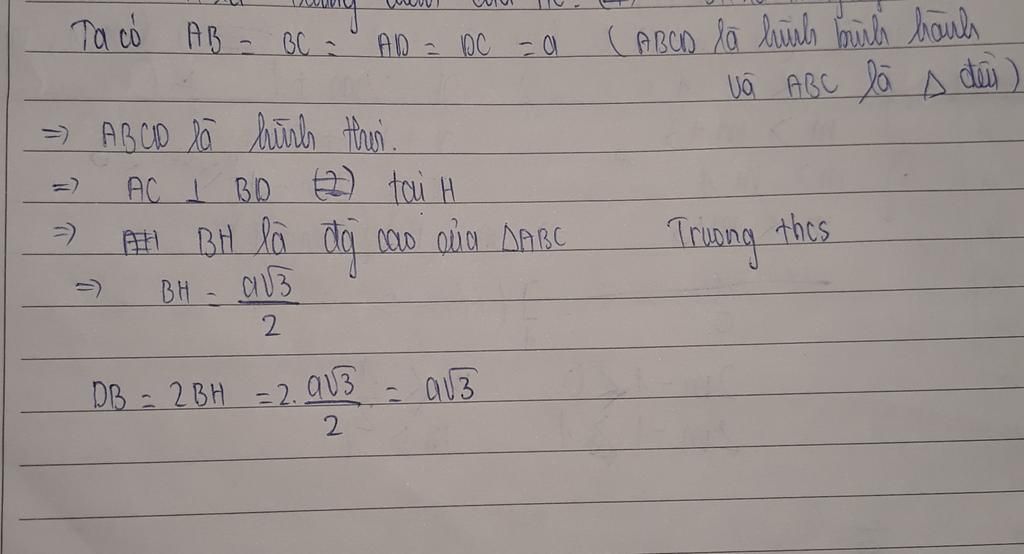 Ta có AB = BC = AD = DC = a (ABCD là hình bình hành
và ABC là Δ đều)
=> ABCD là hình thoi.
=> AC ⊥ BD (2) tại H
=> BH là đg cao của ΔABC Truong thcs
=> BH = a√3/2
DB = 2BH = 2. a√3/2 = a√3